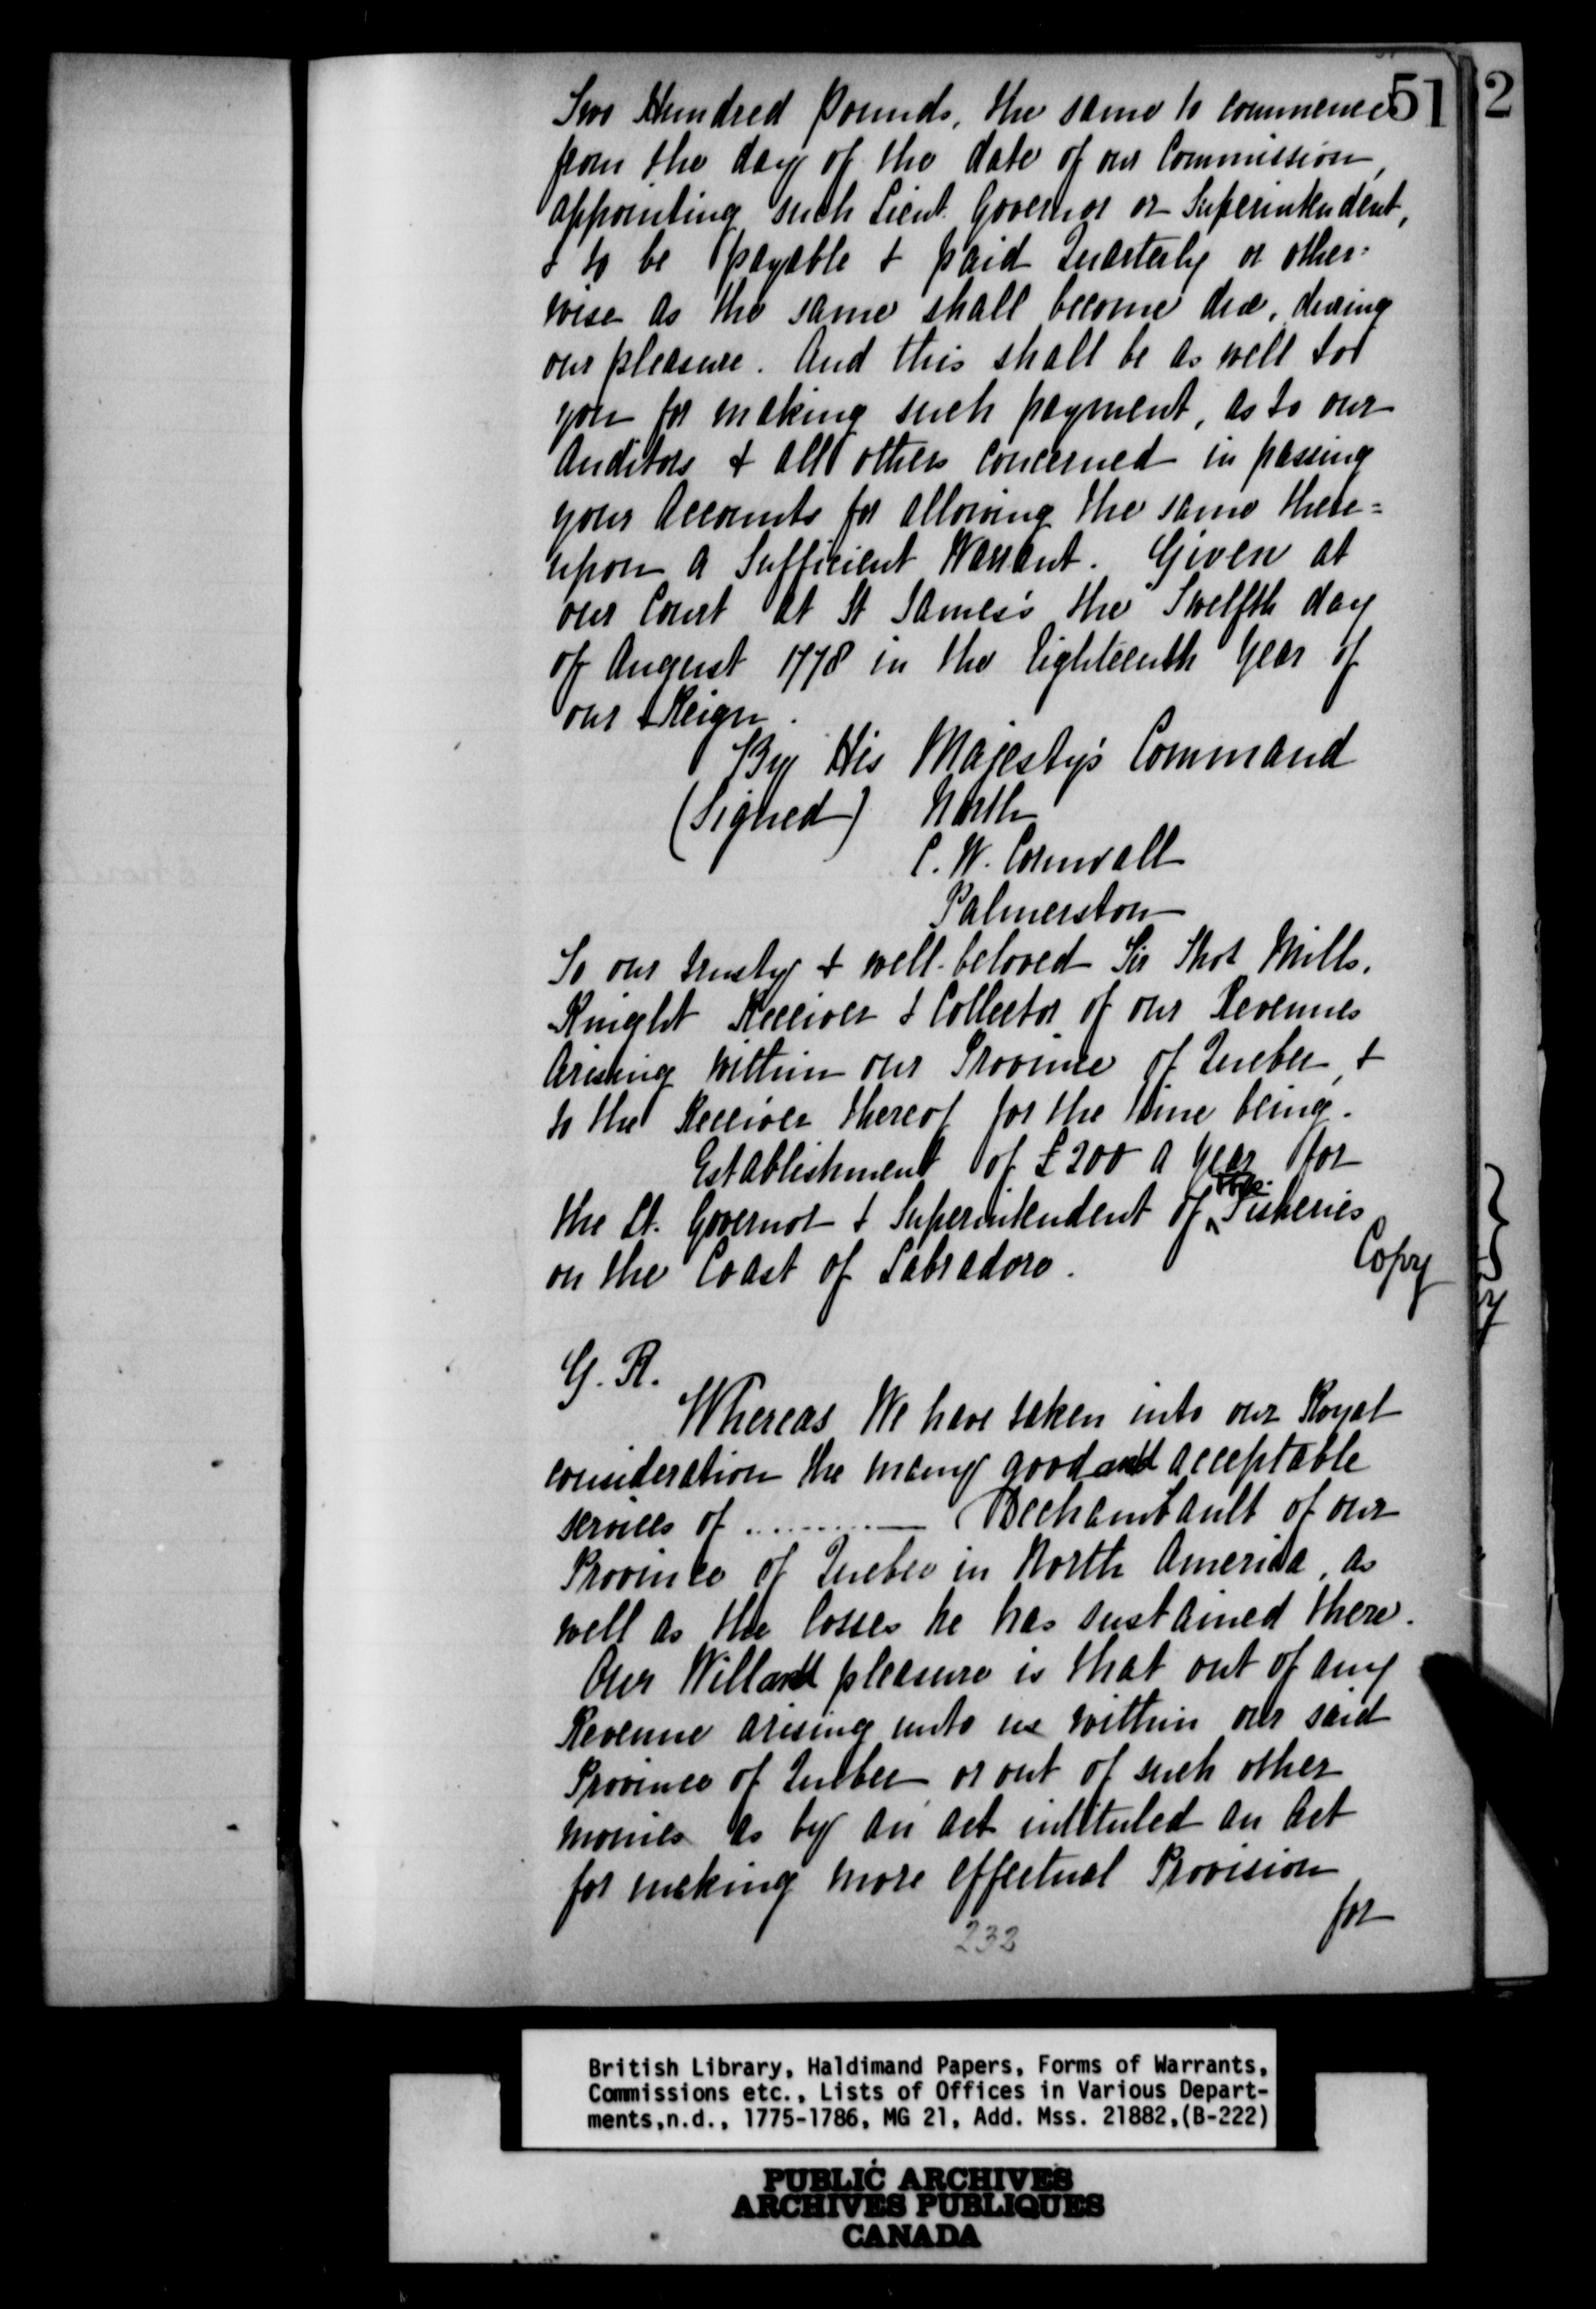 51
2
Two Hundred Pounds, the same to commence
from the day of the date of our Commission,
appointing such Lieut. Governor or Superintendent,
& to be payable & paid Quarterly or other=
wise as the same shall become due, during
our pleasure. And this shall be as well to
you for making such payment, as to our
Auditors & all others concerned in passing
your Accounts for allowing the same there=
upon a Sufficient Warrant. Given at
our Court at St James's the Twelfth day
of August 1778 in the Eighteenth Year of
our Reign.
By His Majesty's Command
(Signed) North
C. W. Cornwall
Palmerston
To our trusty & well-beloved Sir Thos Mills.
Knight Receiver & Collector of our Revenues
Arising within our Province of Quebec, &
to the Receiver thereof for the time being.
Establishment of £200 a Year for
the Lt. Governor & Superintendent of the Fisheries
on the Coast of Labradore.
Copy
G. R.
Whereas We have taken into our Royal
consideration the many good and acceptable
services of .......... Dechambault of our
Province of Quebec in North America, as
well as the losses he has sustained there.
Our Will and pleasure is that out of any
Revenue arising unto us within our said
Province of Quebec or out of such other
monies as by an act intituled an Act
for making more effectual Provision
for
232
British Library, Haldimand Papers, Forms of Warrants,
Commissions etc., Lists of Offices in Various Depart-
ments,n.d., 1775-1786, MG 21, Add. Mss. 21882,(B-222)
PUBLIC ARCHIVES
ARCHIVES PUBLIQUES
CANADA